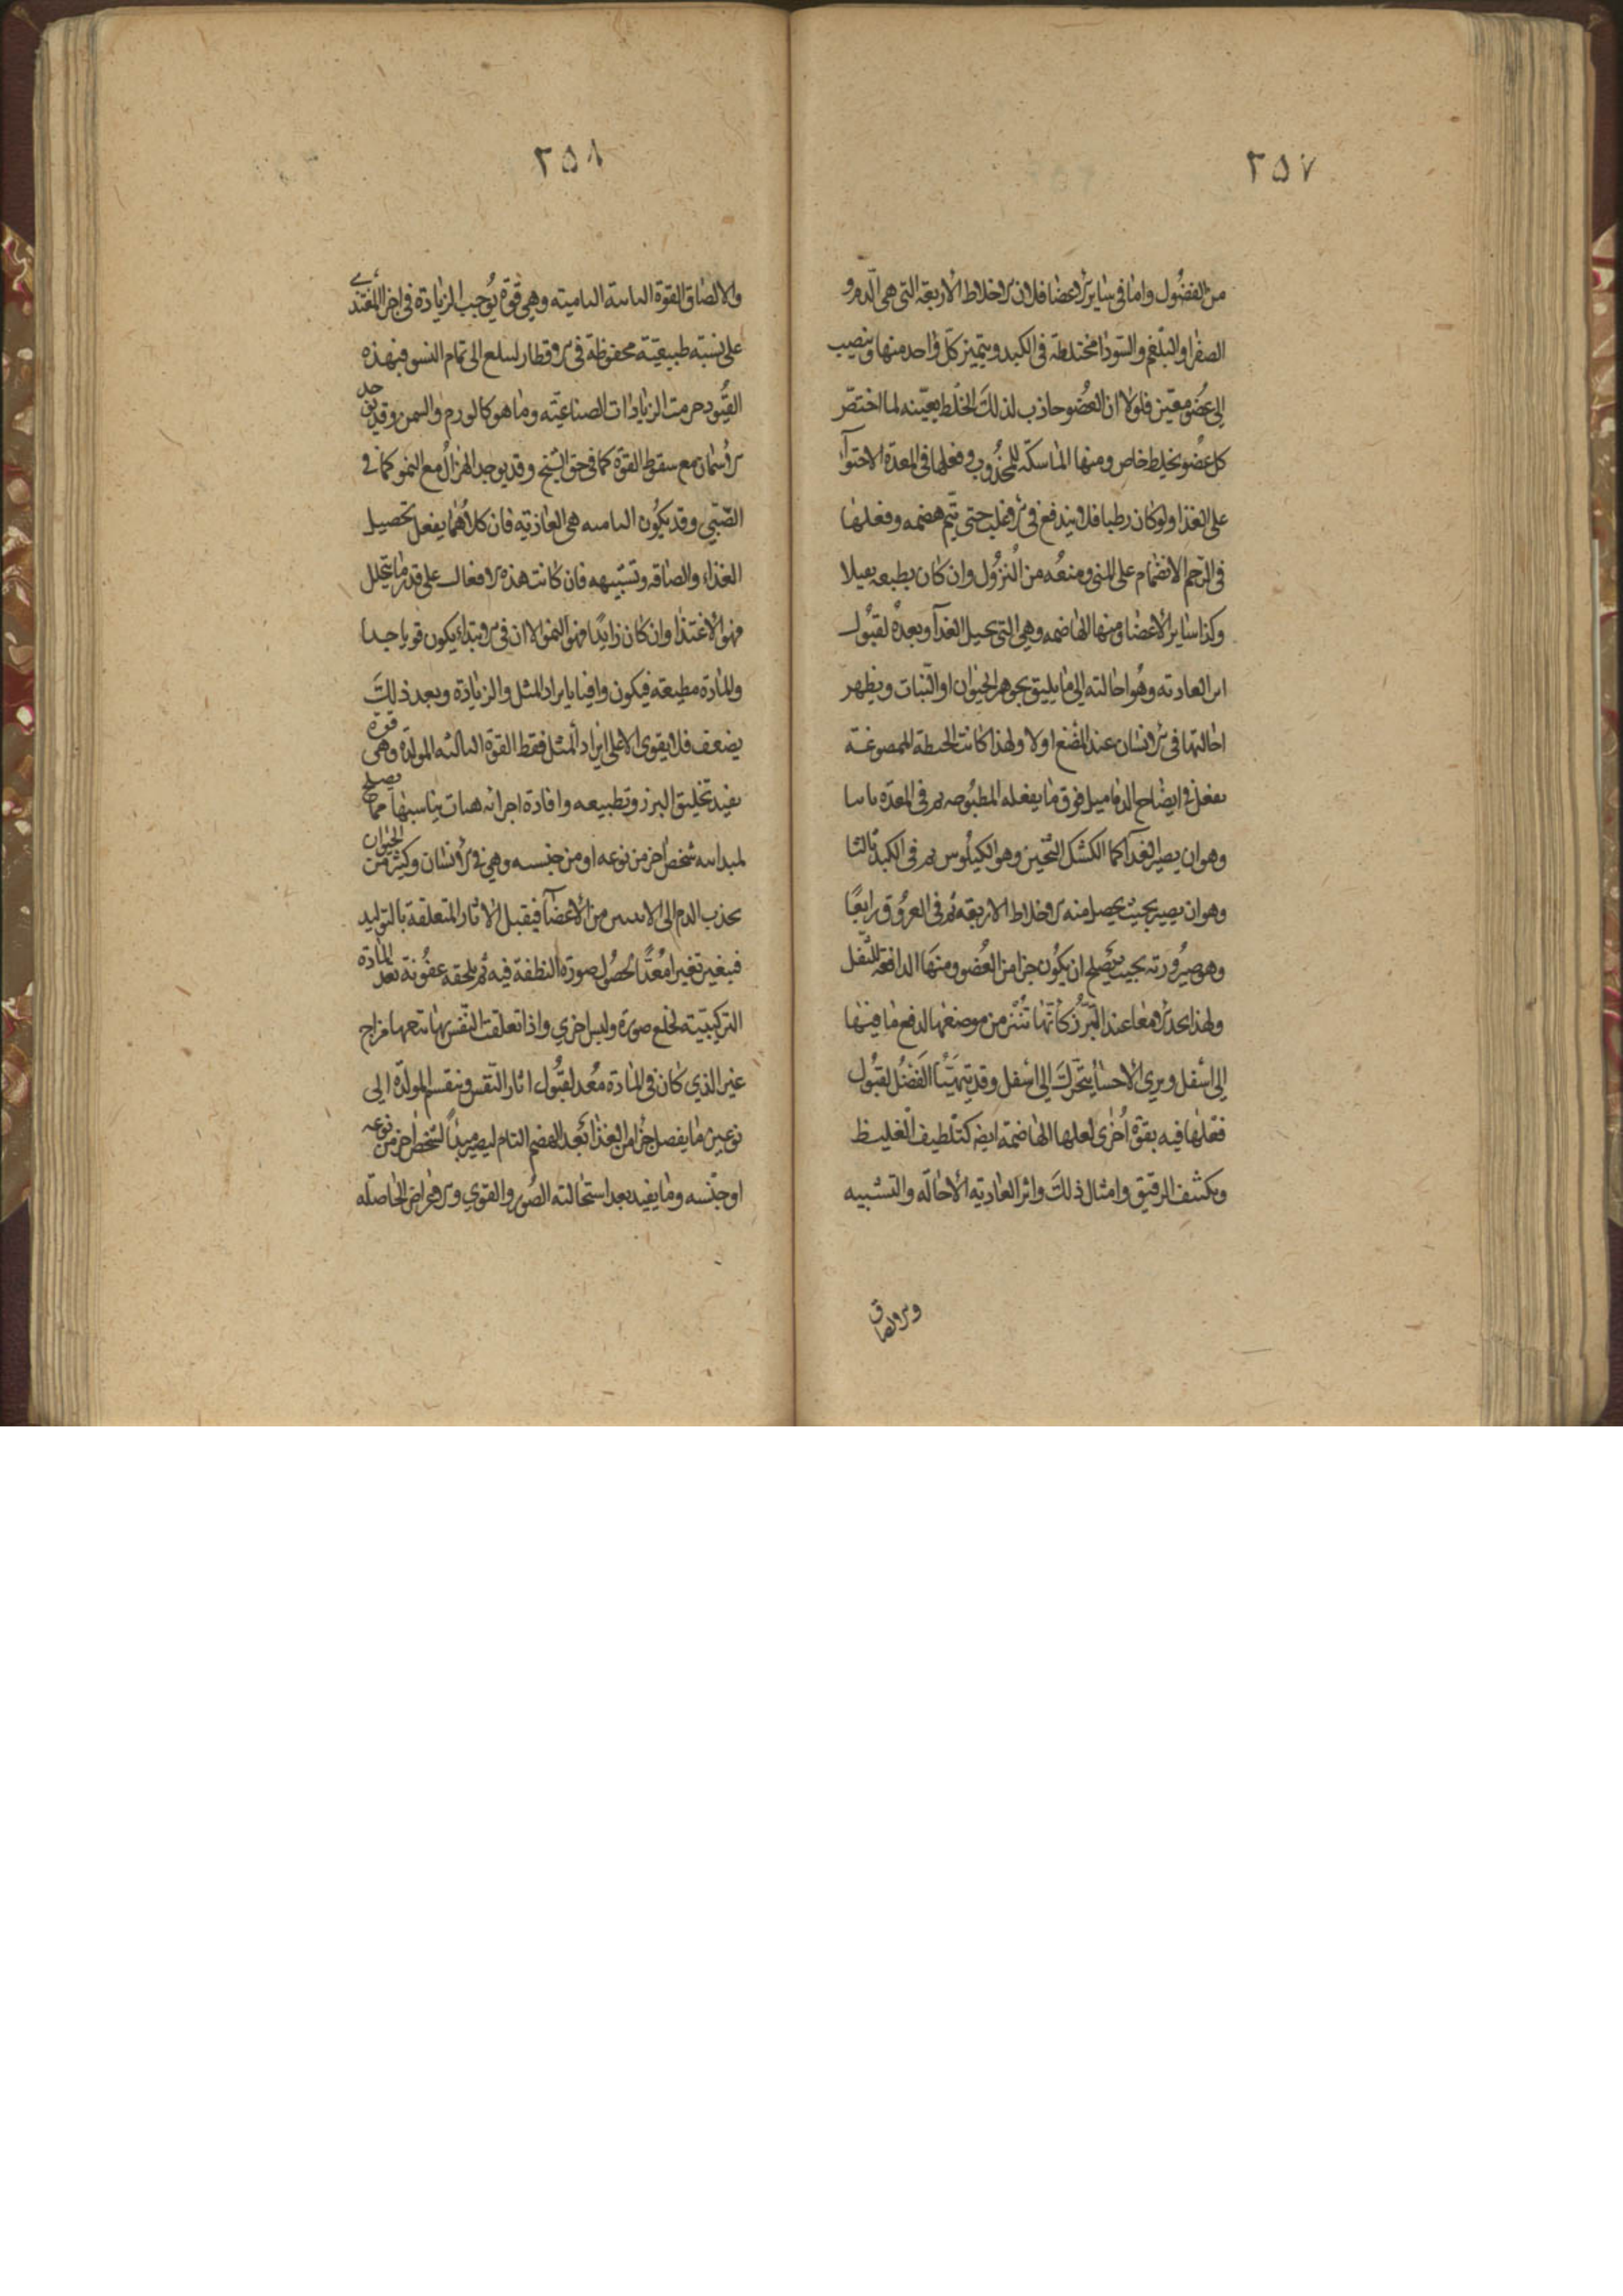 ٢٥٧
من الفضُول واما في سَايرَ الاعضا فلان الاخلاط الاربعة التي هي الدم و
الصفرا والبلغم والسَودا مختلطة في الكبد ويتميز كل واحد منها وينصب
الى عضو معَين فلولا ان العضُو جاذب لذلكَ الخلط بعَينه لما اختصّ
كل عضو بخلط خاص ومنها الماسكة للمجذُوب وفعلها في المعدة الاحتوآ
على الغذا ولو كان رطبا فلا يندفع في الاغلب حتى يتم هضمه وفعلها
في الرحم الانضمام على المني ومنعُه من النزوُل وان كان بطبعه يميلا
وكذا ساير الاعضا ومنها الهاضمه وهي التي تحيل الغذآ وتعدهُ لقبُول
اثر الغاذيه وهُو احالته الى ما يليق بجوهر الحيوان او النبات ويظهر
احالتها في الانسان عند المضغ اولا ولهذا كانت الحنطة الممضوغة
تفعل في ايضاح الدماميل فوق ما يفعله المطبُوخه ثم في المعدة ثانيا
وهو ان يصير الغذآ كما الكشك الثخين وهو الكيلوس ثم في الكبد ثالثا
وهو ان يصير بحيث يحصل منه الاخلاط الاربعة ثم في العروُق رابعًا
وهو صيرُورته بحيث يصَلح ان يكوُن جزا من العُضو ومنهَا الدافعة للثفل
ولهذا يجد الامعا عند التبرُّز كانّها تُنْتزع من موضعها لدفع ما فيهَا
الى اسفل ويري الاحشا يتحرَّكَ الى اسفل وقد يتهَيّا الفَضْل لقبُول
فعْلها فيه بقوّة اخرى لعلها الهاضمَة ايضا كتلطيف الغليظ
وتكثف الرقيق وامثال ذلكَ واثر الغاذية الاحالة والتشبيه
والالصاق
٢٥٨
والالصَاق القوّة الثانية الناميته وهي قوّة يُوجب الزيادة في اجزا المغتذي
على نسَبة طبيعيّة محفوظة في الاقطار لتبلغ الى تمام النشو فبهذه
القُيُود خرجت الزيادات الصناعيّه وما هو كالورم والسمن وقد يوجد
الاسمان مع سقوط القوّة كما في حق الشيخ وقد يوجد الهُزالُ مع النمو كما في
الصَّبّي وقد يكوُن الناميه هي الغاذيَة فان كلا منُهما يفعل تحصيل
الغذاء والصَاقه وتشبيهه فان كانت هذه الافعال على قدر ما يتحلل
فهوَ الاغتذا وان كان زايدًا فهوَ النمو الا ان في الابتدا يكون قويا جدا
والمادة مطيعة فيكون وافيا بايراد المثل والزيادَة وبعد ذلكَ
يضعف فلا يقوى الا على ايراد المثل فقط القوّة الثالثه المولدة وهي قوة
يفيد تخليق البزر وتطبيعه وافادة اجزائه هيات يناسبها مما يصلح
لمبدائيه شخص اخر من نوعه او من جنسه وهي في الانسَان وكثير من الحيوان
يجذب الدم الى الانثيين من الاعضَآ فيقبل الاثار المتعلقة بالتوليد
فيغير تغيرا مُعدًّا لحصُول صورة النطفة فيه ثم يلحقه عفوُنة تعدّ المادة
التركيبيّة لخلع صورة ولبس اخرى واذا تعلّقت النّفس بها يتبعها مزاج
غير الذي كان في المادة مُعد لقبُول اثار النّفس وينقسم المولدّه الى
نوعين ما يفصل جزا من الغذا بعد الهضم التام ليصير مبدًا لشخص اخر من نوعه
او جنسه وما يفيد بعد استحالته الصُور والقوي والاعراض الحاصله